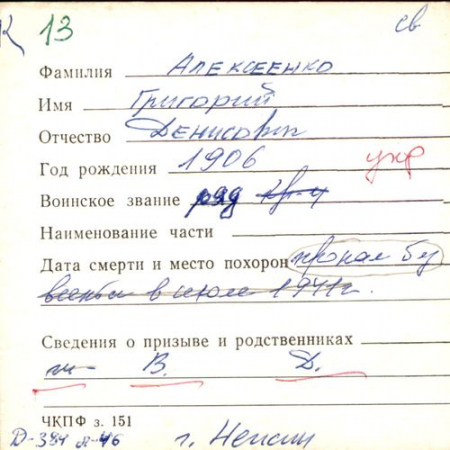 К 13 св
Фамилия Алексеенко
Имя Григорий
Отчество Денисович
Год рождения 1906 укр
Воинское звание ряд
Наименование части
Дата смерти и место похорон пропал без
вести в июле 1941г.
Сведения о призыве и родственниках
В. Д.
ЧКПФ з. 151
Д-384 л-46 г. Нежин